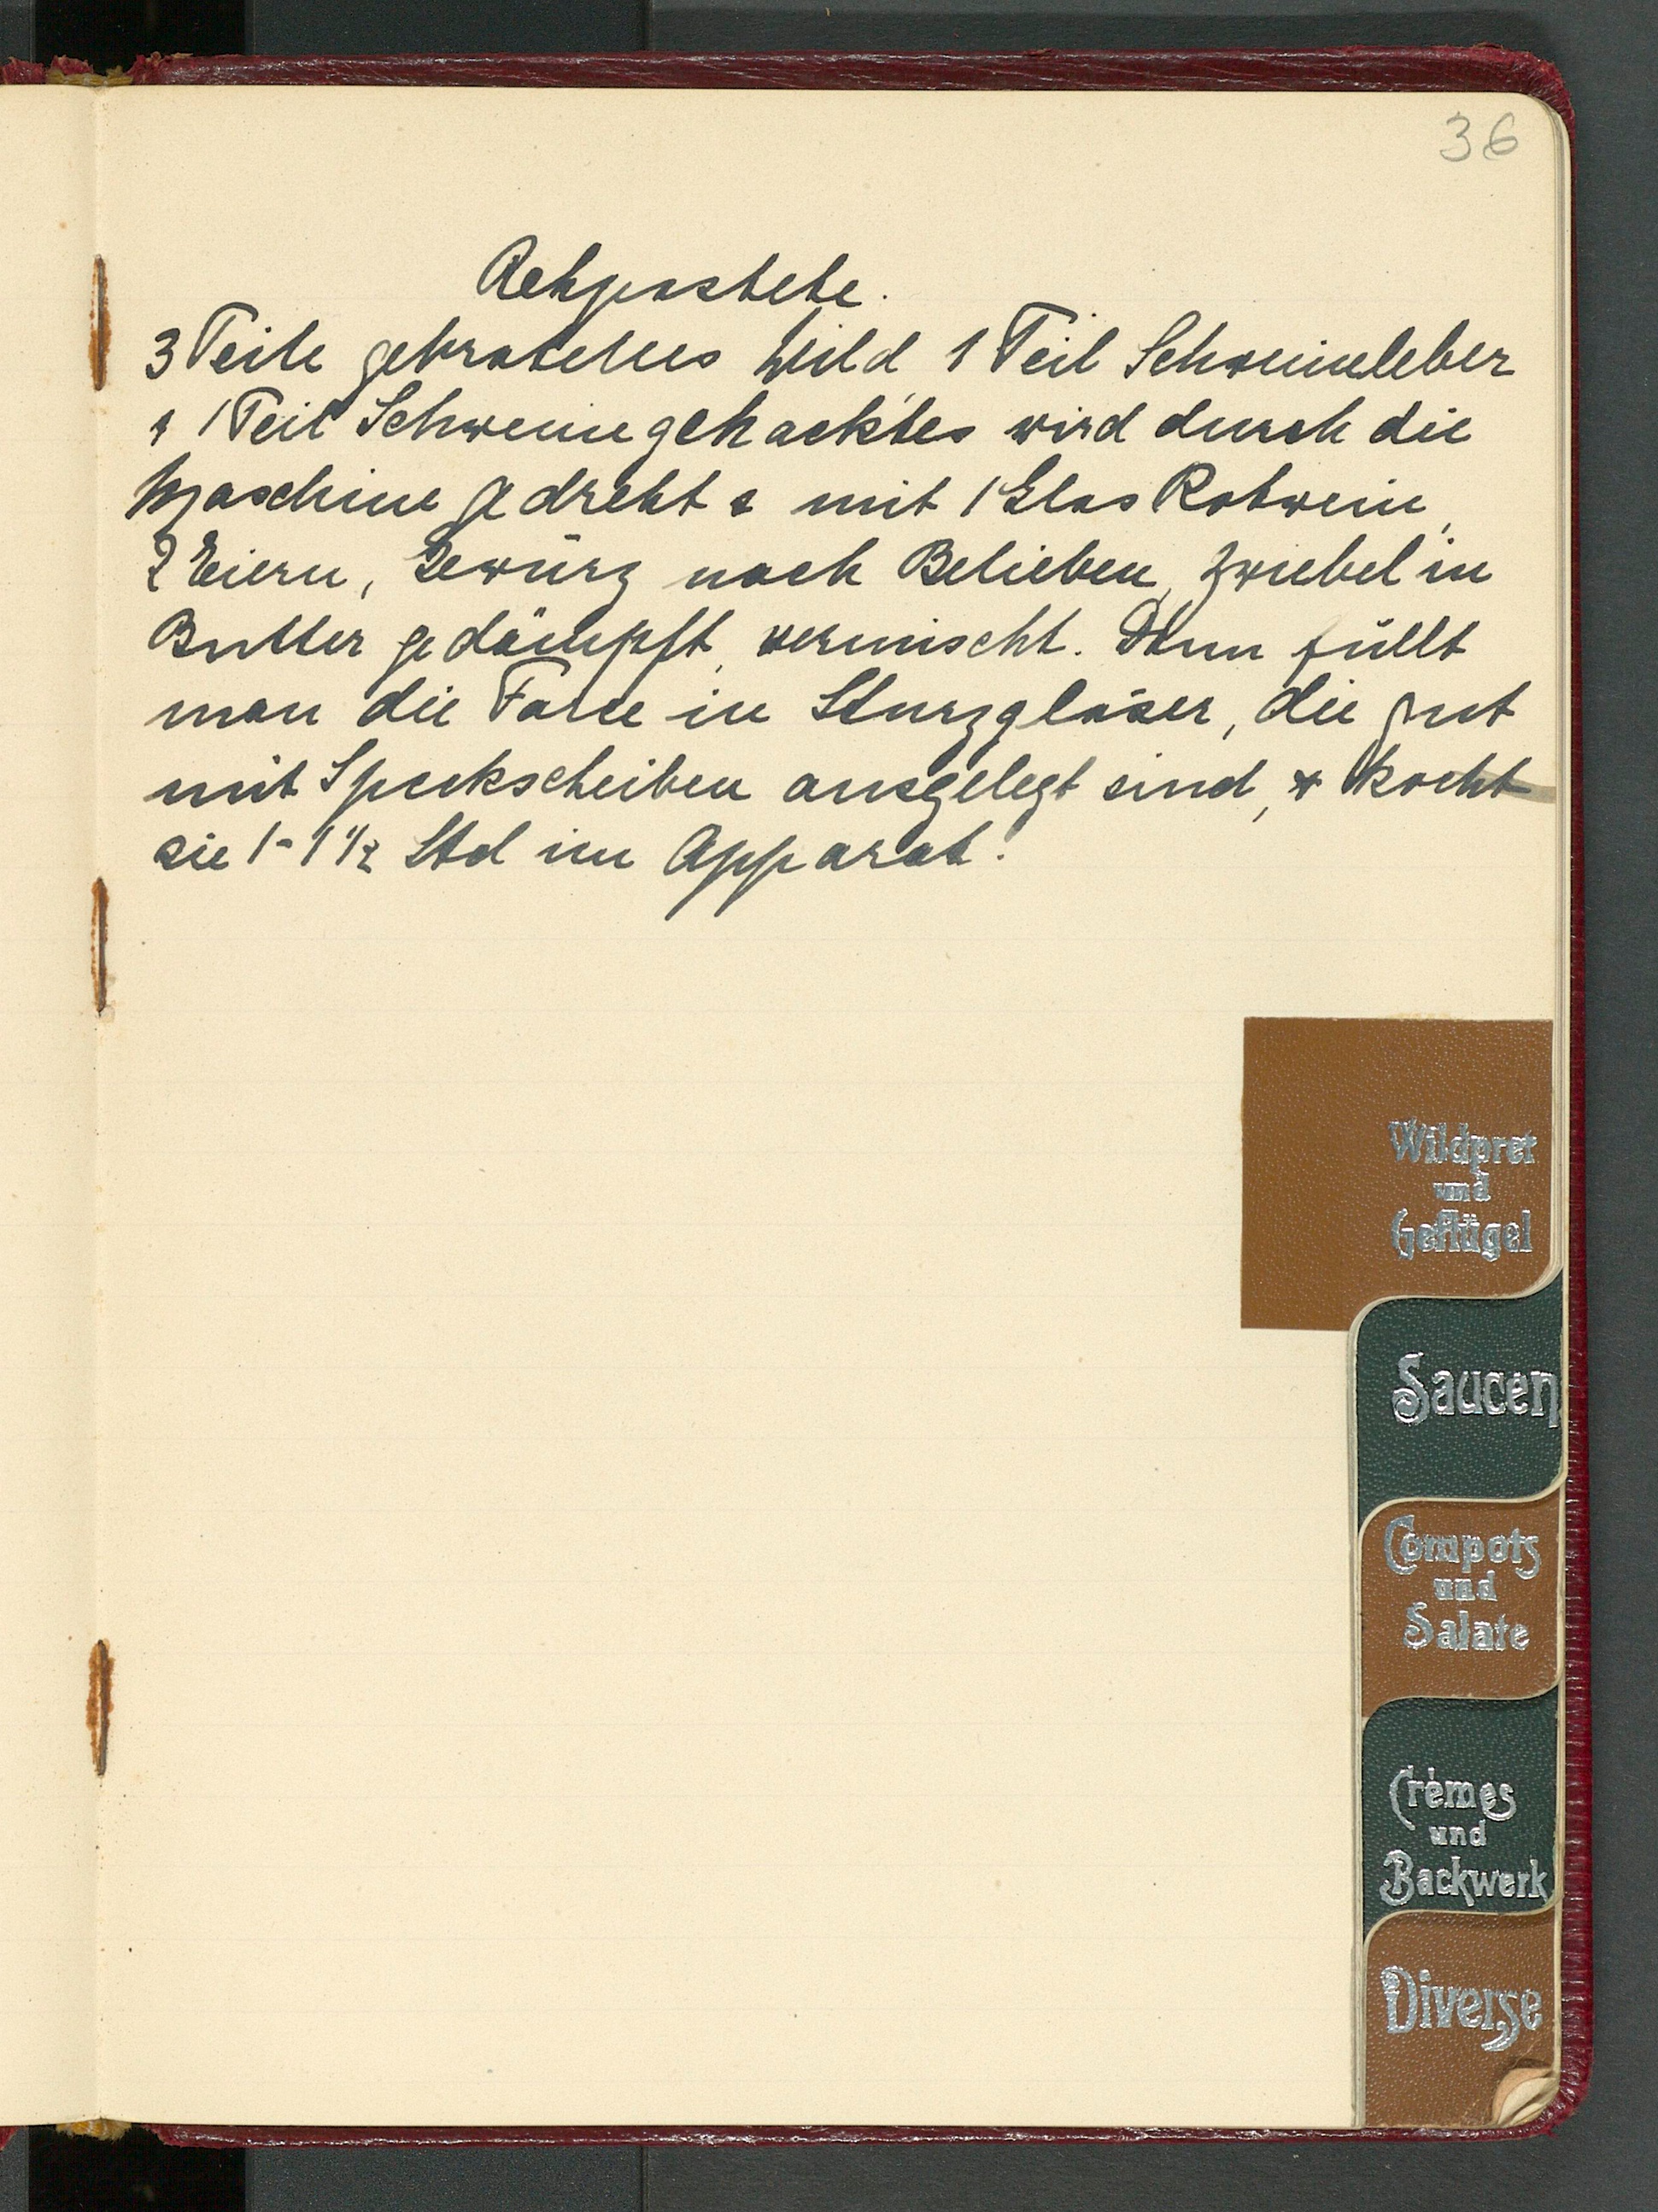 36
Rehpastete.
3 Teile gebratenes Wild 1 Teil Schweineleber
& 1 Teil Schweinegehacktes wird durch die
Maschine gedreht & mit 1 Glas Rotwein,
2 Eiern, Gewürz nach Belieben, Zwiebel in
Butter gedämpft, vermischt. Dann füllt
man die Farce in Sturzgläser, die gut
mit Speckscheiben ausgelegt sind, & kocht
sie 1-1 1/2 Std im Apparat.
Wildpret
und
Geflügel
Saucen
Compots
und
Salate
Crèmes
und
Backwerk
Diverse